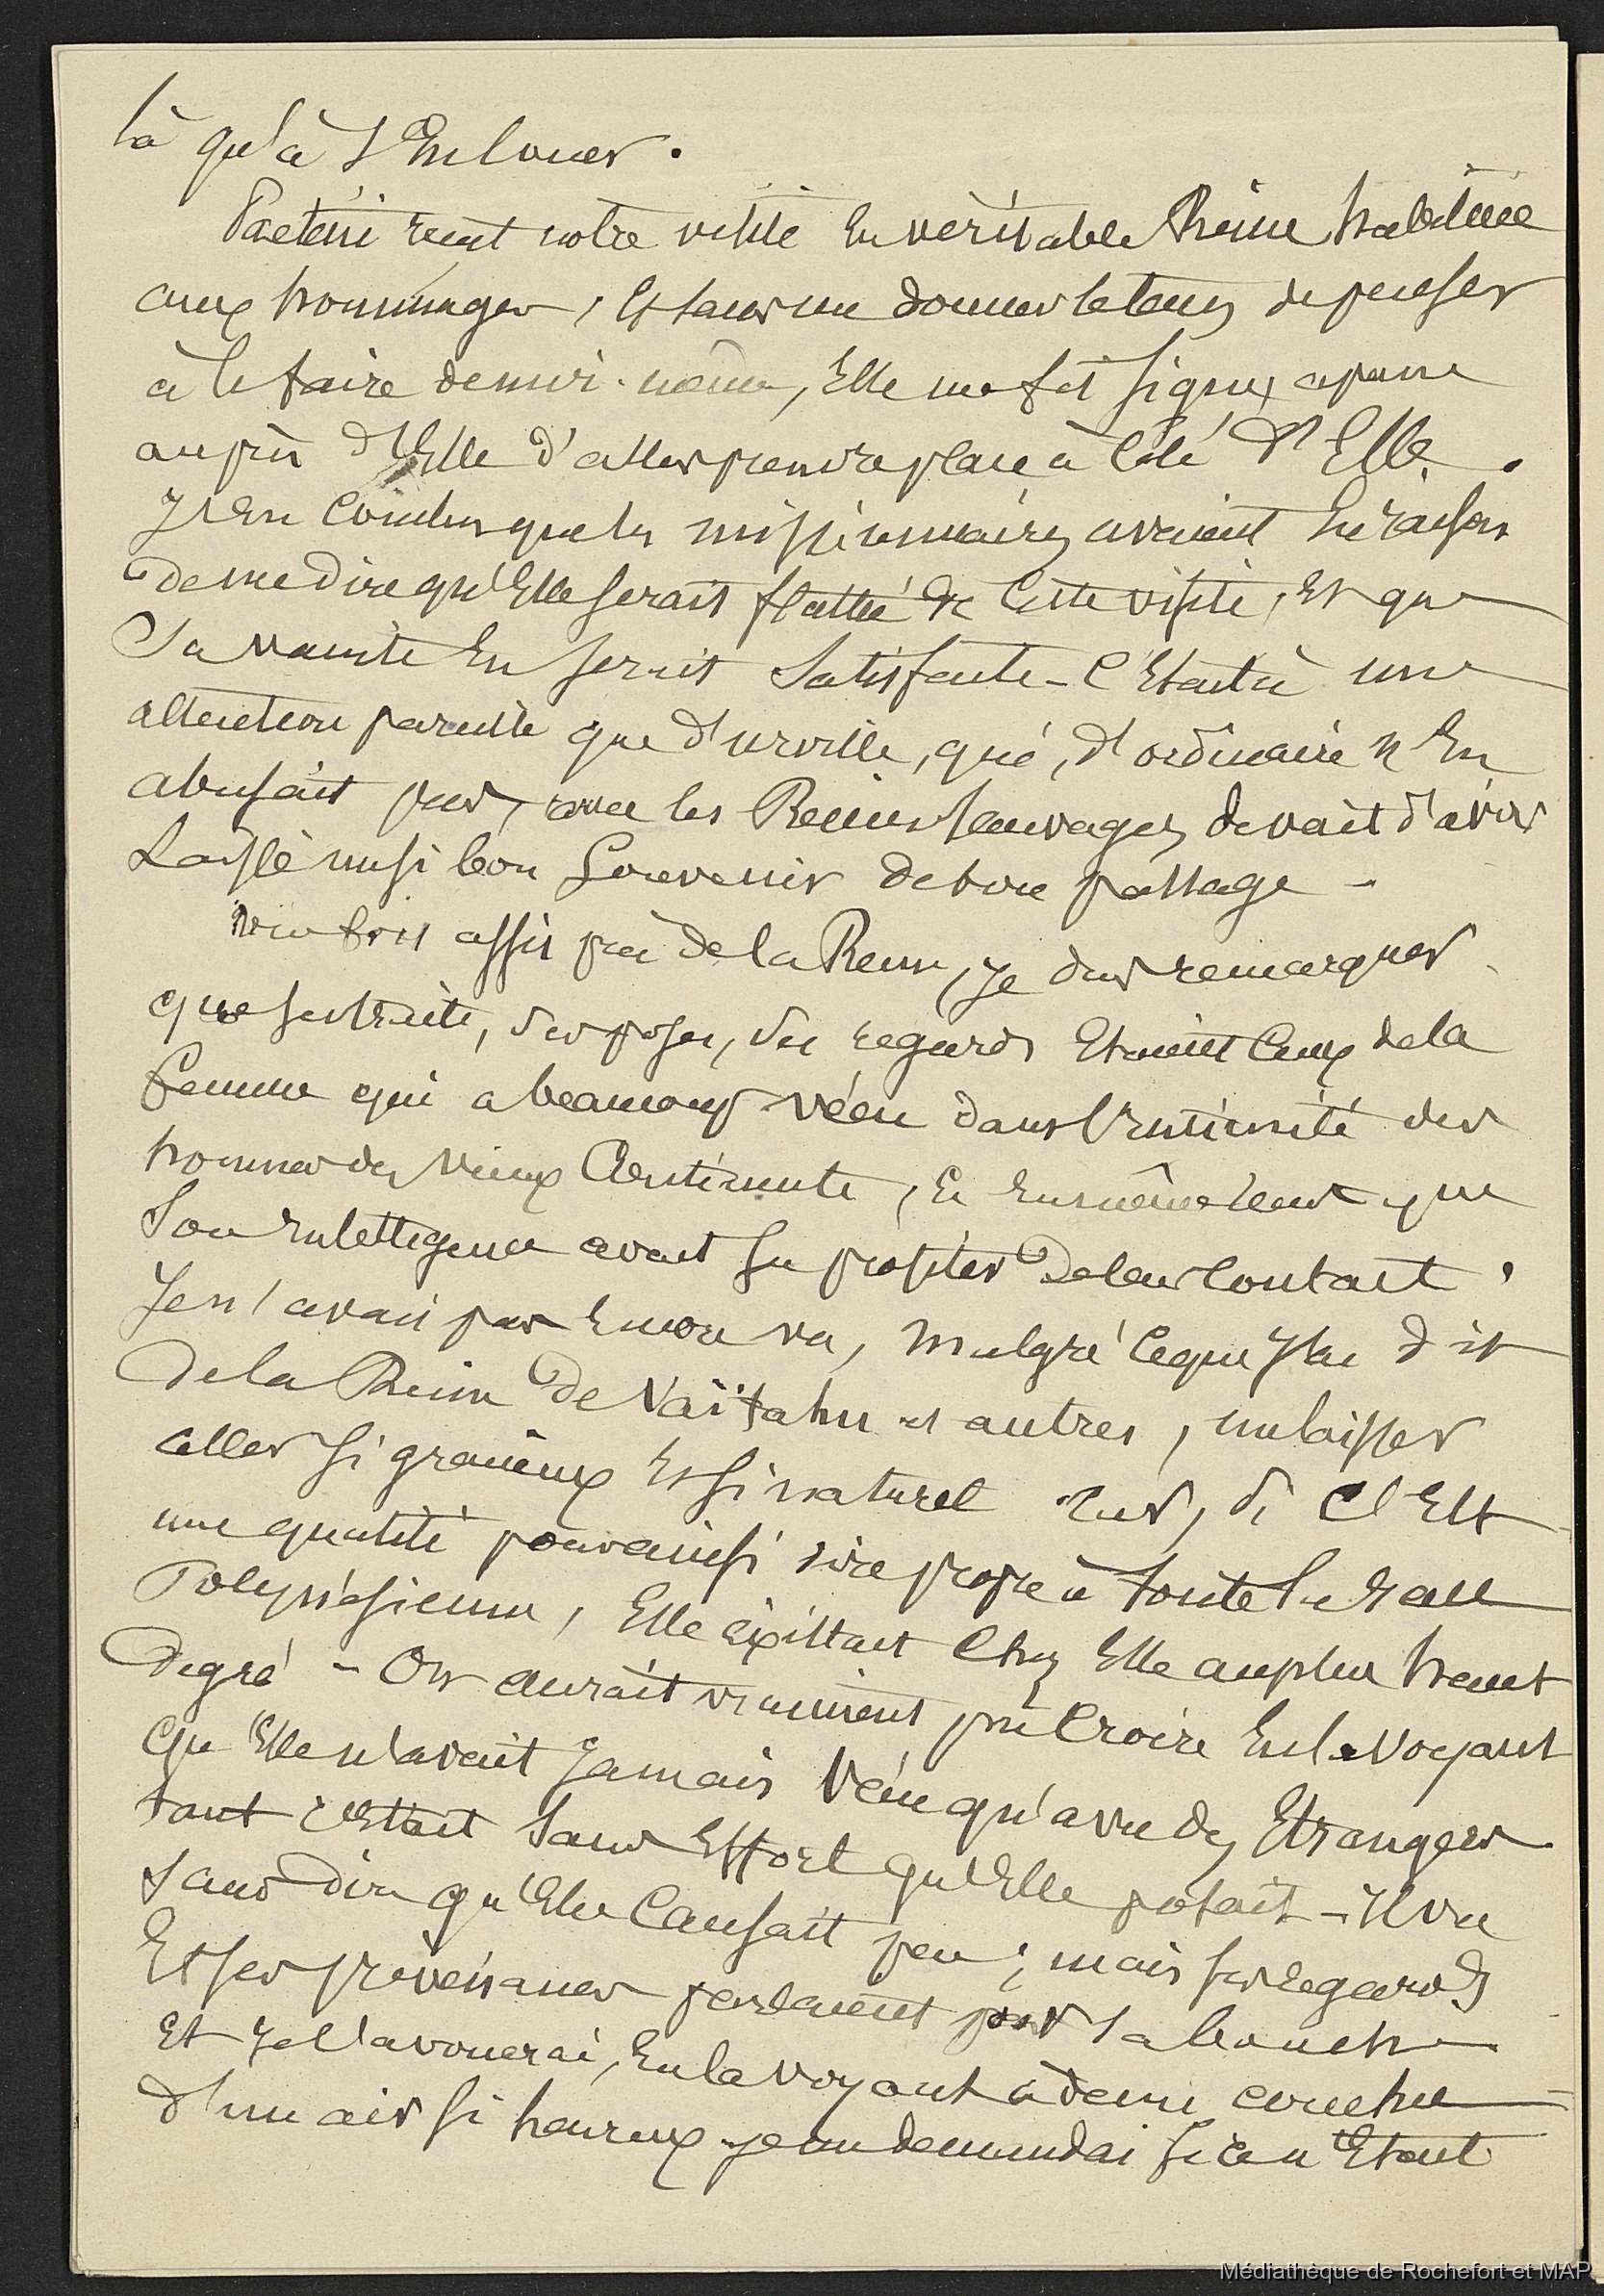 là qu'à s'En louer.
Paetini reçut notre visite En véritable Reine habituée
aux hommages, Et sans me donner le tems de penser
à le faire de moi-même, Elle me fit signe,
auprès d'Elle d'aller prendre place à côté d'Elle.
J'En conclus que les missionnaires avaient Eu raison
de me dire qu'Elle serait flattée de Cette visite, Et que
Sa vanité En serait Satisfaite - C'Etait à une
attention pareille que d'urville, qui, d'ordinaire n'En
abusait pas, avec les Reines Sauvages, devait d'avoir
Laissé un si bon Souvenir de son passage -
Une fois assis près de la Reine, je dus remarquer
que ses traits, ses poses, ses regards Etaient Ceux de la
femme qui a beaucoup vécu dans l'intimité des
hommes du vieux Continent, Et En même tems que
Son intelligence avait su profiter De leur Contact.
Je n'avais pas Encore vu, malgré Ce que J'ai dit
De la Reine De Vaïtahu et autres, un laisser
aller si gracieux Et si naturel car, si C'Est
une qualité pour ainsi dire propre à toute la race
Polynésienne, Elle Existait Chez Elle au plus haut
Degré - On aurait vraiment pu Croire En la voyant
qu'Elle n'avait Jamais Vécu qu'avec des Etrangers
tant c'Etait Sans Effort qu'Elle posait - Il va
sans dire qu'Elle Causait peu; mais ses regards
Et ses prévenances parlaient pour sa bouche
Et Je l'avouerai, En la voyant à demi couchée
d'un air si heureux je me demandai si ce n'Etait